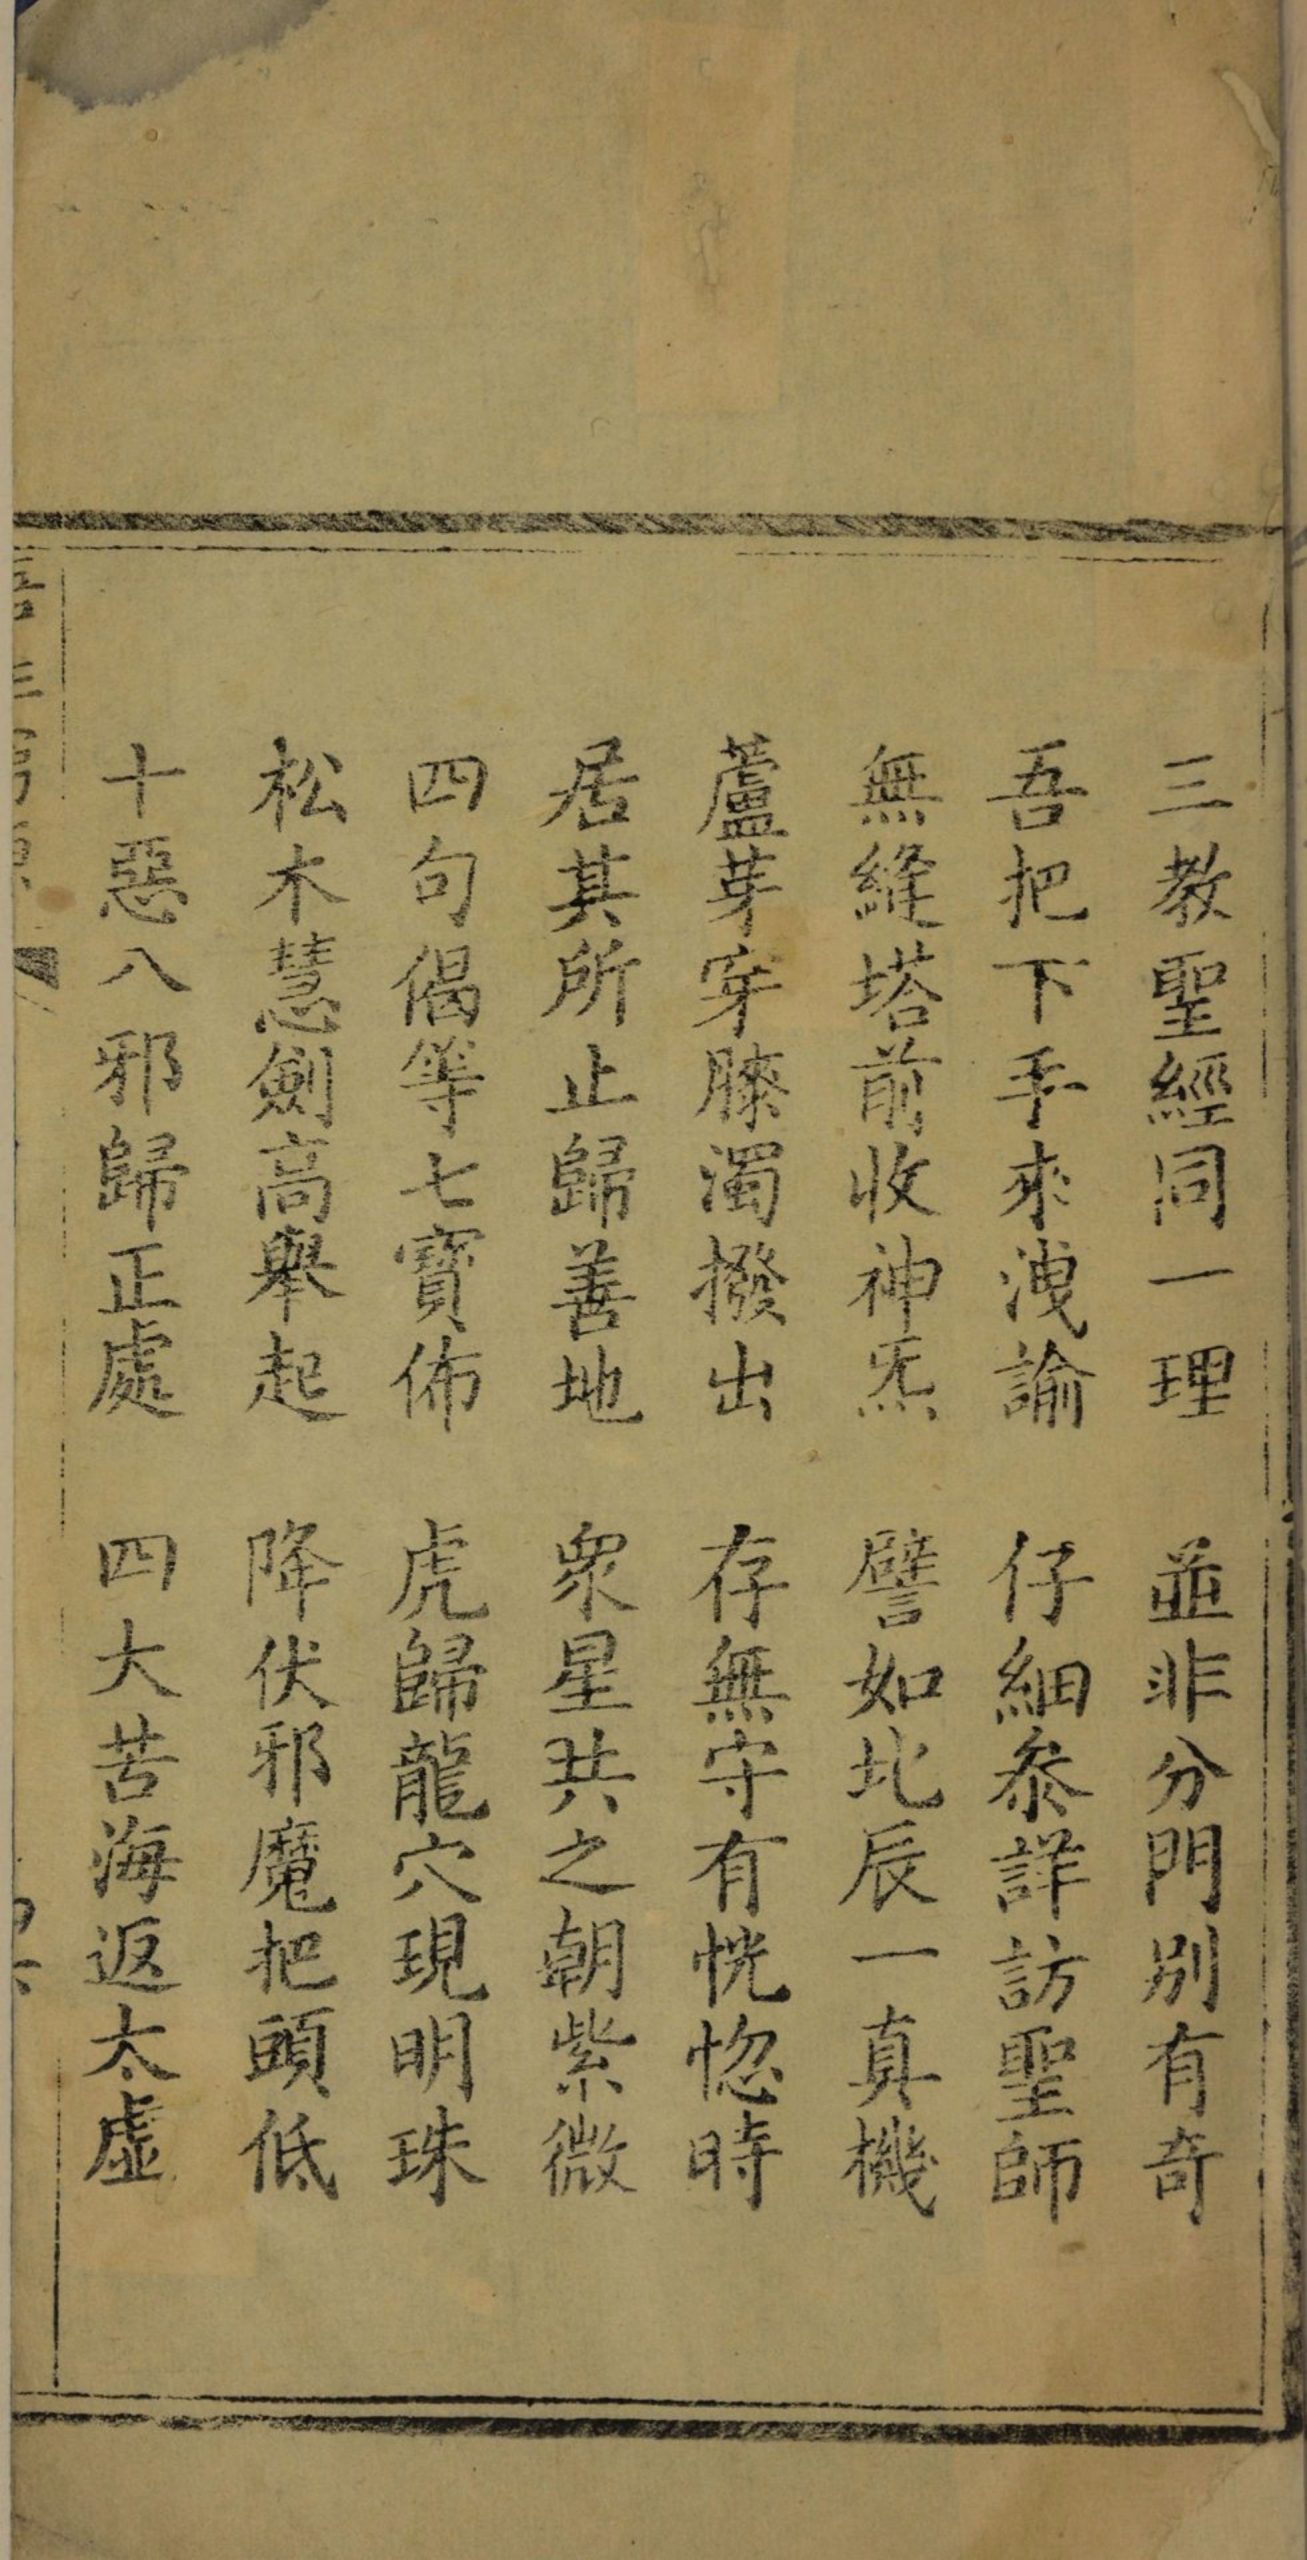 三教聖經同一理　並非分門別有奇
吾把下手來洩諭　仔細叅詳訪聖師
無縫塔前收神炁　譬如北辰一真機
蘆芽穿膝濁撥出　存無守有恍惚時
居其所止歸善地　衆星共之朝紫微
四句偈等七寶佈　虎歸龍穴現明珠
松木慧劍高舉起　降伏邪魔把頭低
十惡八邪歸正處　四大苦海返太虛